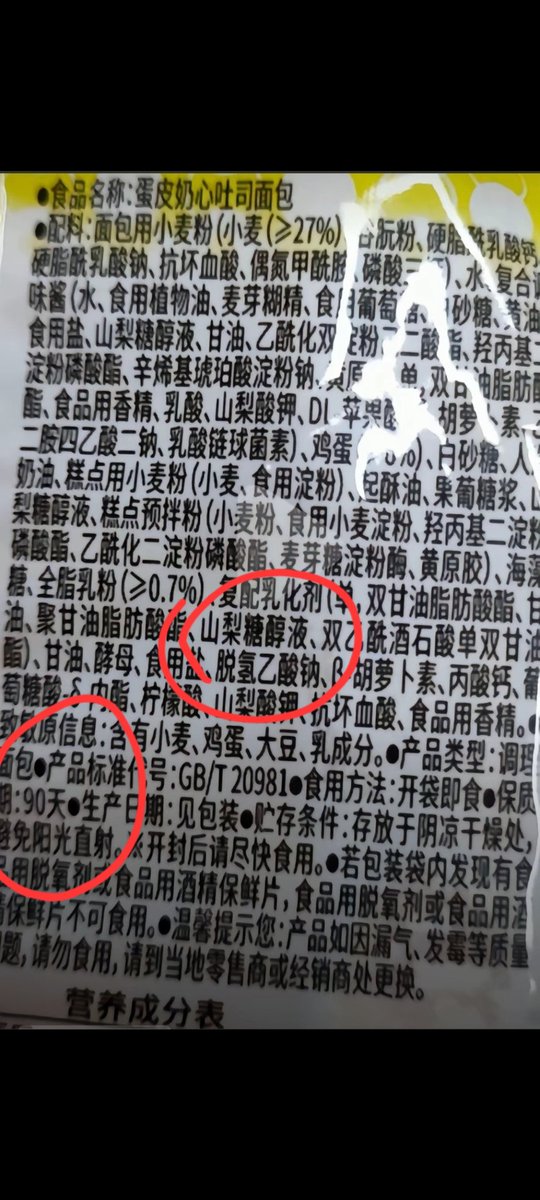 ●食品名称:蛋皮奶心吐司面包
●配料:面包用小麦粉(小麦(≥27%) 谷朊粉、硬脂酰乳酸钙
硬脂酰乳酸钠、抗坏血酸、偶氮甲酰胺、磷酸三 )、水、复合调
味酱(水、食用植物油、麦芽糊精、食用葡萄糖、白砂糖、黄油
食用盐、山梨糖醇液、甘油、乙酰化双淀粉己二酸酯、羟丙基二
淀粉磷酸酯、辛烯基琥珀酸淀粉钠、黄原 单,双甘油脂肪酸
酯、食品用香精、乳酸、山梨酸钾、DL-苹果酸 胡萝卜素、乙
二胺四乙酸二钠、乳酸链球菌素)、鸡蛋 %)、白砂糖、人
奶油、糕点用小麦粉(小麦、食用淀粉)、起酥油、果葡糖浆、山
梨糖醇液、糕点预拌粉(小麦粉、食用小麦淀粉、羟丙基二淀粉
磷酸酯、乙酰化二淀粉磷酸酯、麦芽糖淀粉酶、黄原胶)、海藻
糖、全脂乳粉(≥0.7%)、复配乳化剂(单,双甘油脂肪酸酯、甘
油、聚甘油脂肪酸酯、山梨糖醇液、双乙酰酒石酸单双甘油
酯)、甘油、酵母、食用盐、脱氢乙酸钠、 胡萝卜素、丙酸钙、葡
萄糖酸-δ-内酯、柠檬酸、山梨酸钾、抗坏血酸、食品用香精。●
致敏原信息:含有小麦、鸡蛋、大豆、乳成分。●产品类型:调理
面包●产品标准代号:GB/T 20981●食用方法:开袋即食●保质
期:90天●生产日期:见包装●贮存条件:存放于阴凉干燥处,
避免阳光直射。※开封后请尽快食用。●若包装袋内发现有食
品用脱氧剂或食品用酒精保鲜片,食品用脱氧剂或食品用酒
精保鲜片不可食用。●温馨提示您:产品如因漏气、发霉等质量
问题,请勿食用,请到当地零售商或经销商处更换。
营养成分表